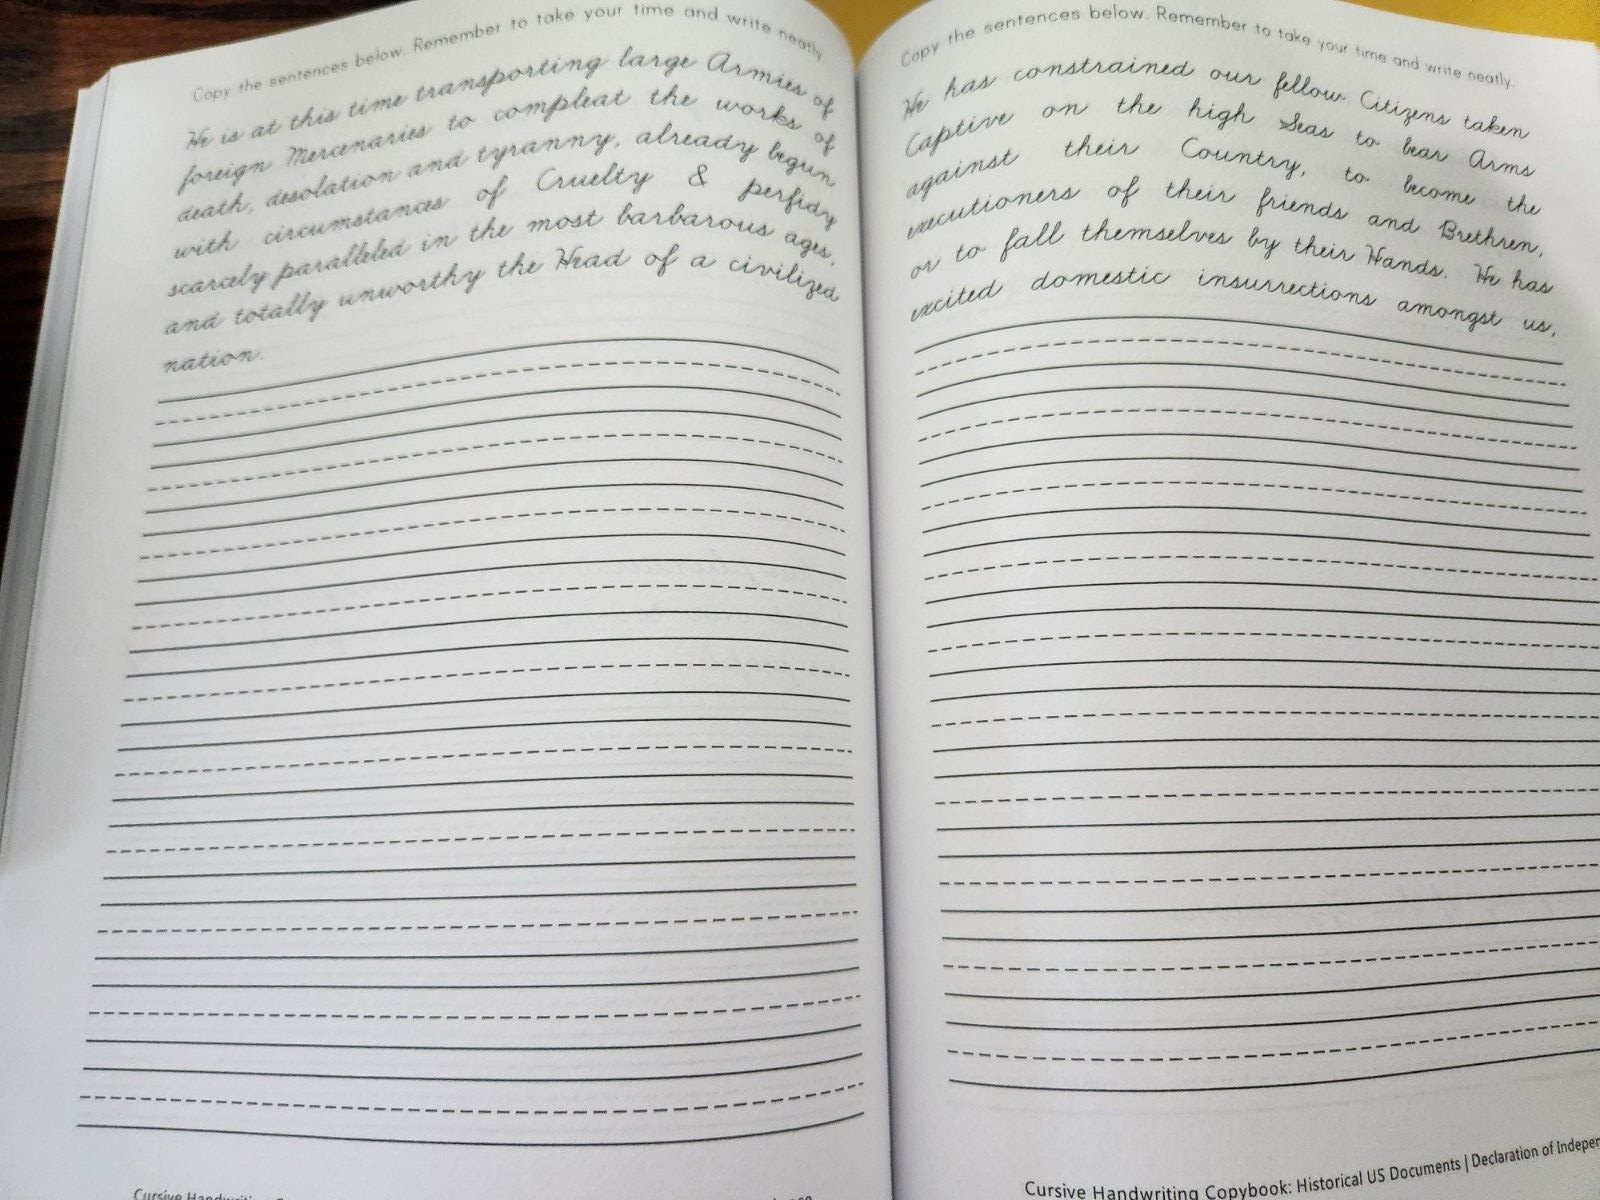 Copy the sentences below. Remember to take your time and write neatly.
He is at this time transporting large Armies of
foreign Mercenaries to compleat the works of
death, desolation and tyranny, already begun
with circumstances of Cruelty & perfidy
scarcely paralleled in the most barbarous ages,
and totally unworthy the Head of a civilized
nation.
Cursive
Copy the sentences below. Remember to take your time and write neatly.
He has constrained our fellow Citizens taken
Captive on the high Seas to bear Arms
against their Country, to become the
executioners of their friends and Brethren,
or to fall themselves by their Hands. He has
excited domestic insurrections amongst us,
Cursive Handwriting Copybook: Historical US Documents | Declaration of Indepen